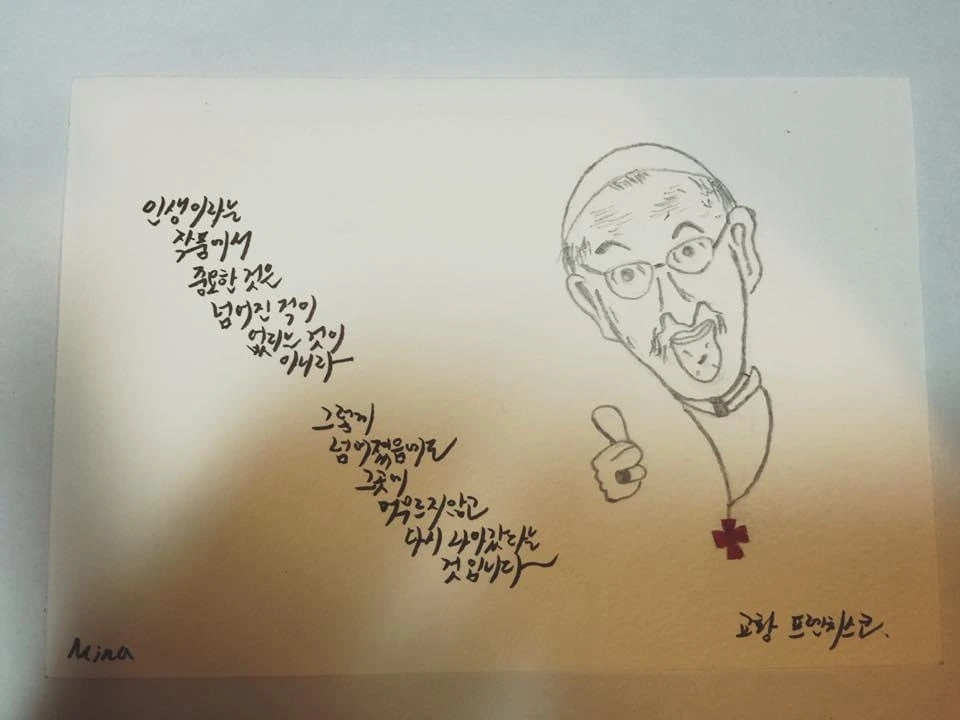 인생이라는
작품에서
중요한 것은
넘어진 적이
없다는 것이
아니라
그렇게
넘어졌음에도
그곳에
머무르지않고
다시 나아갔다는
것 입니다
교황 프렌치스코.
Mina